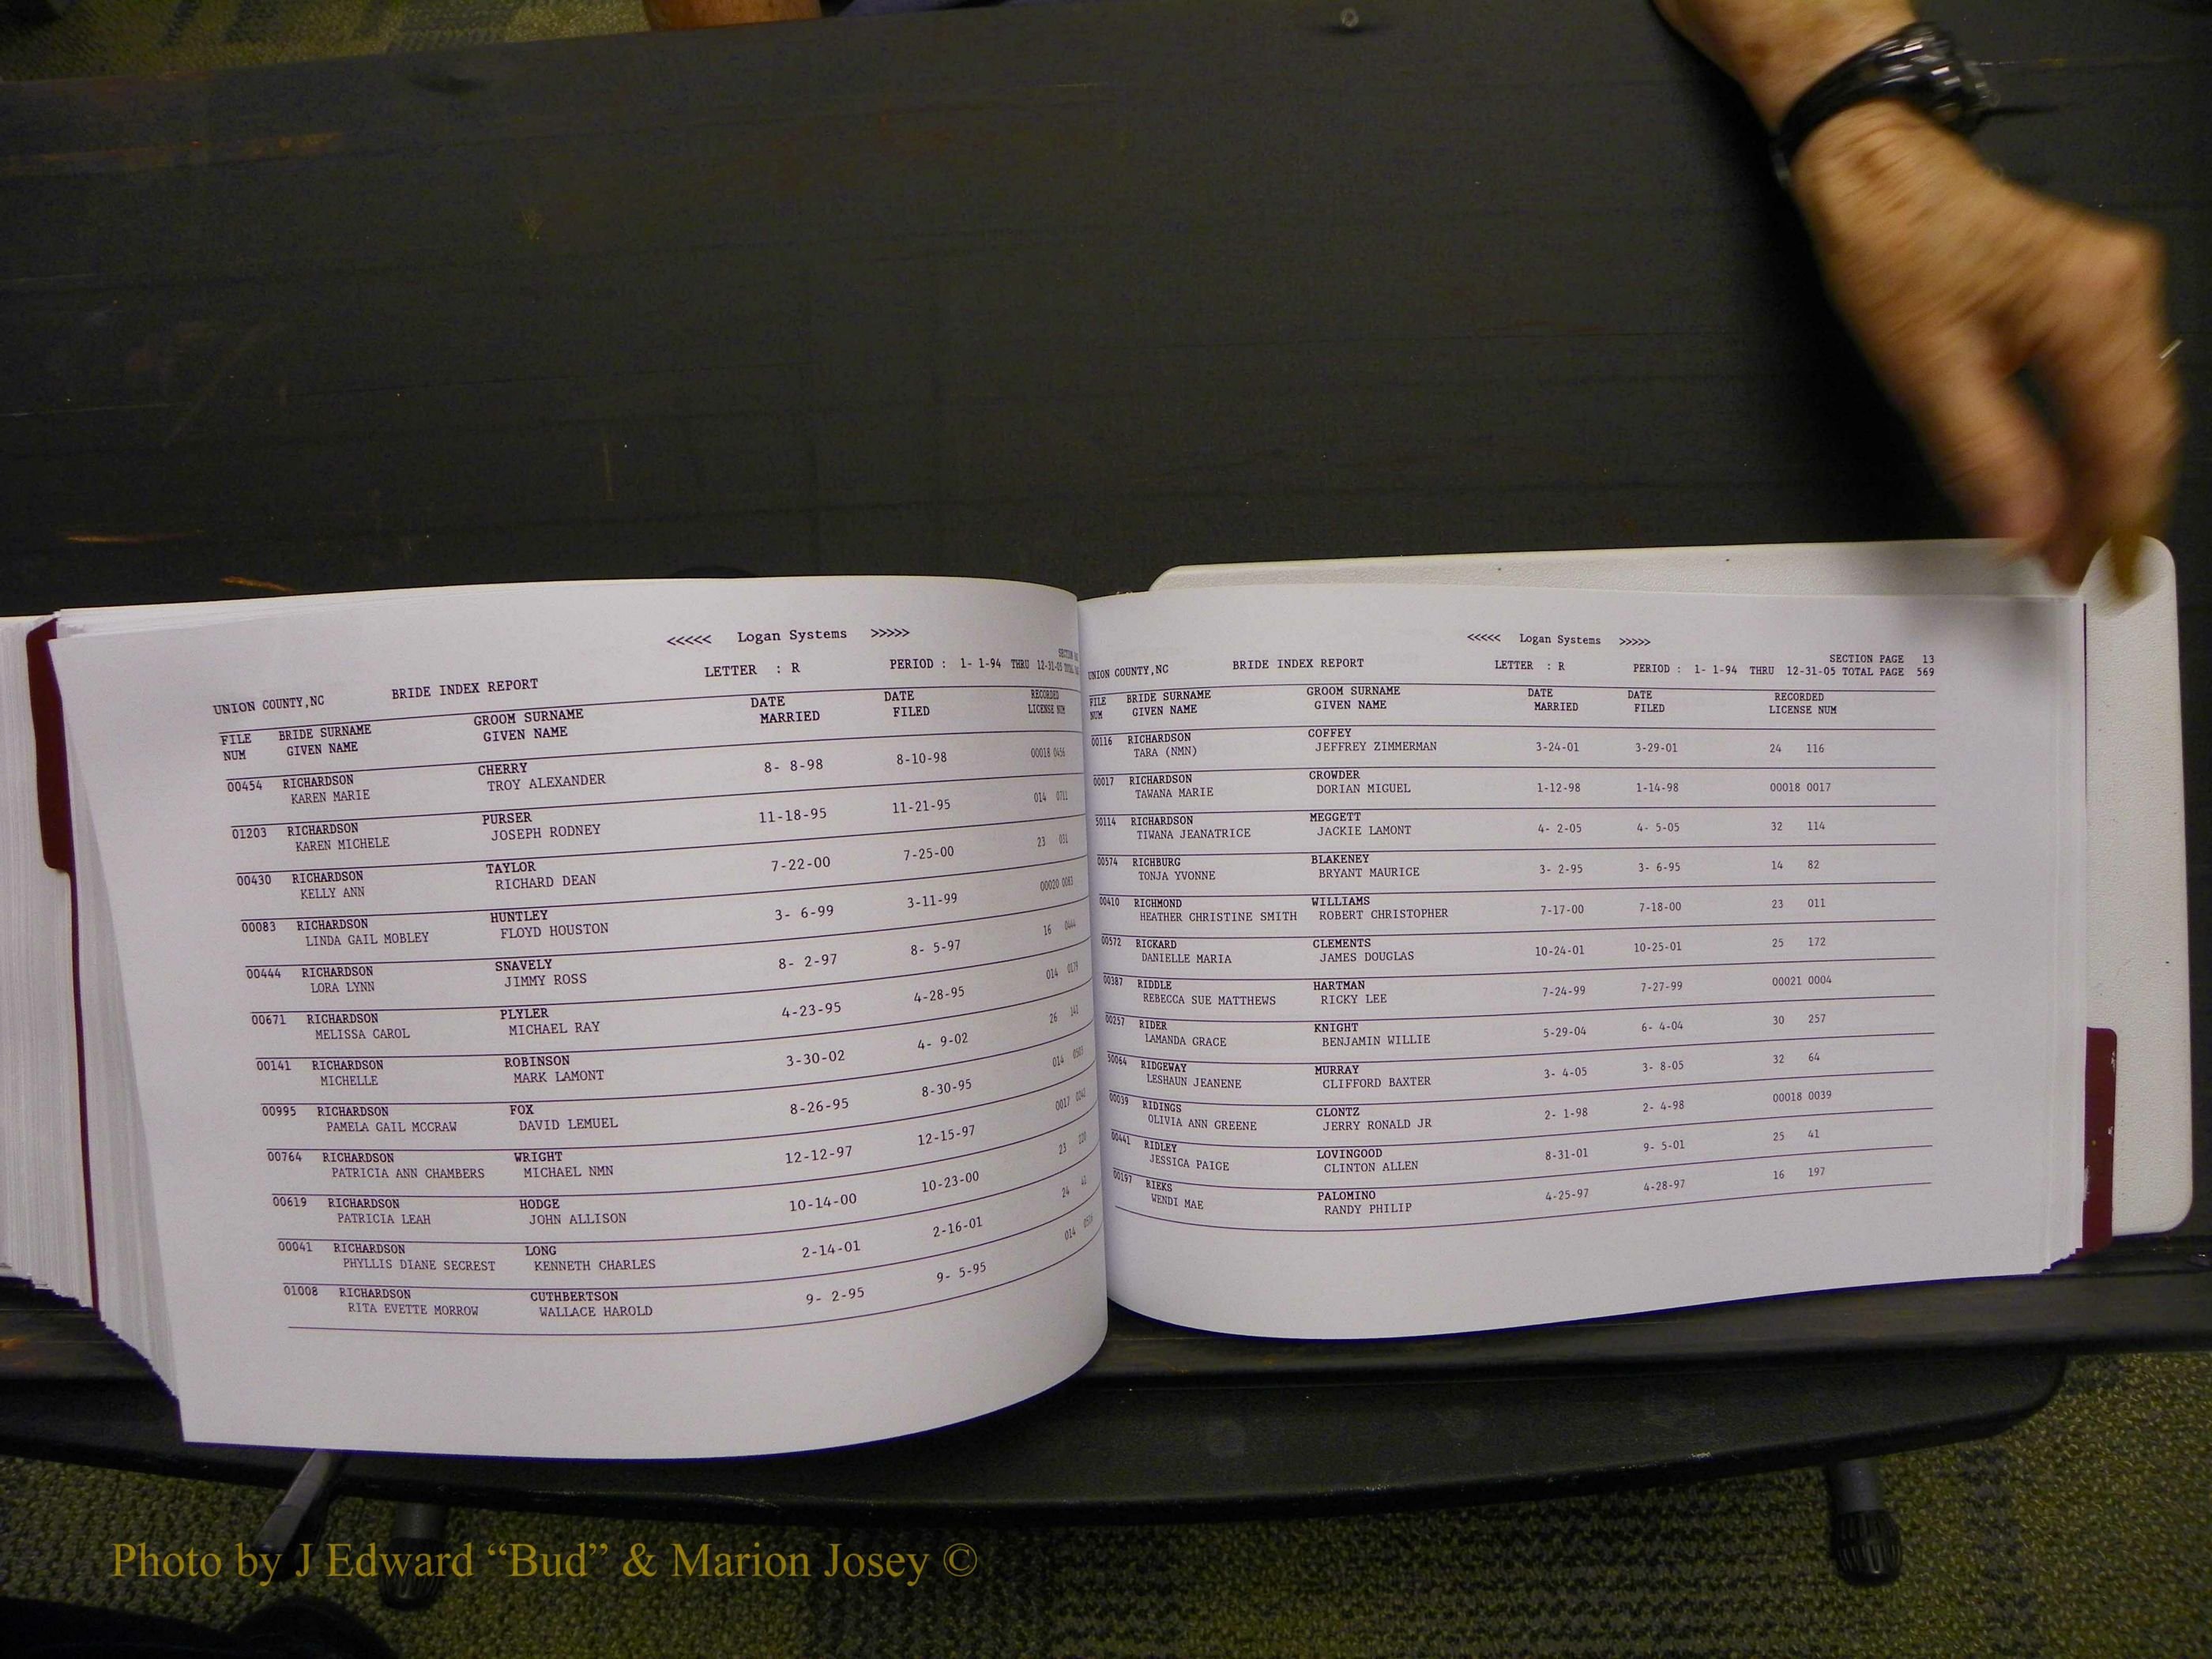 <<<<< Logan Systems >>>>>
UNION COUNTY,NC BRIDE INDEX REPORT LETTER : R PERIOD : 1- 1-94 THRU 12-31-05 TOTAL
FILE BRIDE SURNAME GROOM SURNAME DATE DATE RECORDED
NUM GIVEN NAME GIVEN NAME MARRIED FILED LICENSE NUM
00454 RICHARDSON CHERRY 8- 8-98 8-10-98 00018 0456
KAREN MARIE TROY ALEXANDER
01203 RICHARDSON PURSER 11-18-95 11-21-95 014 0711
KAREN MICHELE JOSEPH RODNEY
00430 RICHARDSON TAYLOR 7-22-00 7-25-00 23 031
KELLY ANN RICHARD DEAN
00083 RICHARDSON HUNTLEY 3- 6-99 3-11-99 00020 0083
LINDA GAIL MOBLEY FLOYD HOUSTON
00444 RICHARDSON SNAVELY 8- 2-97 8- 5-97 16 0444
LORA LYNN JIMMY ROSS
00671 RICHARDSON PLYLER 4-23-95 4-28-95 014 0179
MELISSA CAROL MICHAEL RAY
00141 RICHARDSON ROBINSON 3-30-02 4- 9-02 26 141
MICHELLE MARK LAMONT
00995 RICHARDSON FOX 8-26-95 8-30-95 014
PAMELA GAIL MCCRAW DAVID LEMUEL
00764 RICHARDSON WRIGHT 12-12-97 12-15-97 0017
PATRICIA ANN CHAMBERS MICHAEL NMN
00619 RICHARDSON HODGE 10-14-00 10-23-00 23 220
PATRICIA LEAH JOHN ALLISON
00041 RICHARDSON LONG 2-14-01 2-16-01 24 41
PHYLLIS DIANE SECREST KENNETH CHARLES
01008 RICHARDSON CUTHBERTSON 9- 2-95 9- 5-95 014
RITA EVETTE MORROW WALLACE HAROLD
<<<<< Logan Systems >>>>>
SECTION PAGE 13
UNION COUNTY,NC BRIDE INDEX REPORT LETTER : R PERIOD : 1- 1-94 THRU 12-31-05 TOTAL PAGE 569
FILE BRIDE SURNAME GROOM SURNAME DATE DATE RECORDED
NUM GIVEN NAME GIVEN NAME MARRIED FILED LICENSE NUM
00116 RICHARDSON COFFEY 3-24-01 3-29-01 24 116
TARA (NMN) JEFFREY ZIMMERMAN
00017 RICHARDSON CROWDER 1-12-98 1-14-98 00018 0017
TAWANA MARIE DORIAN MIGUEL
50114 RICHARDSON MEGGETT 4- 2-05 4- 5-05 32 114
TIWANA JEANATRICE JACKIE LAMONT
00574 RICHBURG BLAKENEY 3- 2-95 3- 6-95 14 82
TONJA YVONNE BRYANT MAURICE
00410 RICHMOND WILLIAMS 7-17-00 7-18-00 23 011
HEATHER CHRISTINE SMITH ROBERT CHRISTOPHER
00572 RICKARD CLEMENTS 10-24-01 10-25-01 25 172
DANIELLE MARIA JAMES DOUGLAS
00387 RIDDLE HARTMAN 7-24-99 7-27-99 00021 0004
REBECCA SUE MATTHEWS RICKY LEE
00257 RIDER KNIGHT 5-29-04 6- 4-04 30 257
LAMANDA GRACE BENJAMIN WILLIE
50064 RIDGEWAY MURRAY 3- 4-05 3- 8-05 32 64
LESHAUN JEANENE CLIFFORD BAXTER
00039 RIDINGS CLONTZ 2- 1-98 2- 4-98 00018 0039
OLIVIA ANN GREENE JERRY RONALD JR
00441 RIDLEY LOVINGOOD 8-31-01 9- 5-01 25 41
JESSICA PAIGE CLINTON ALLEN
00197 RIEKS PALOMINO 4-25-97 4-28-97 16 197
WENDI MAE RANDY PHILIP
Photo by J Edward “Bud” & Marion Josey ©